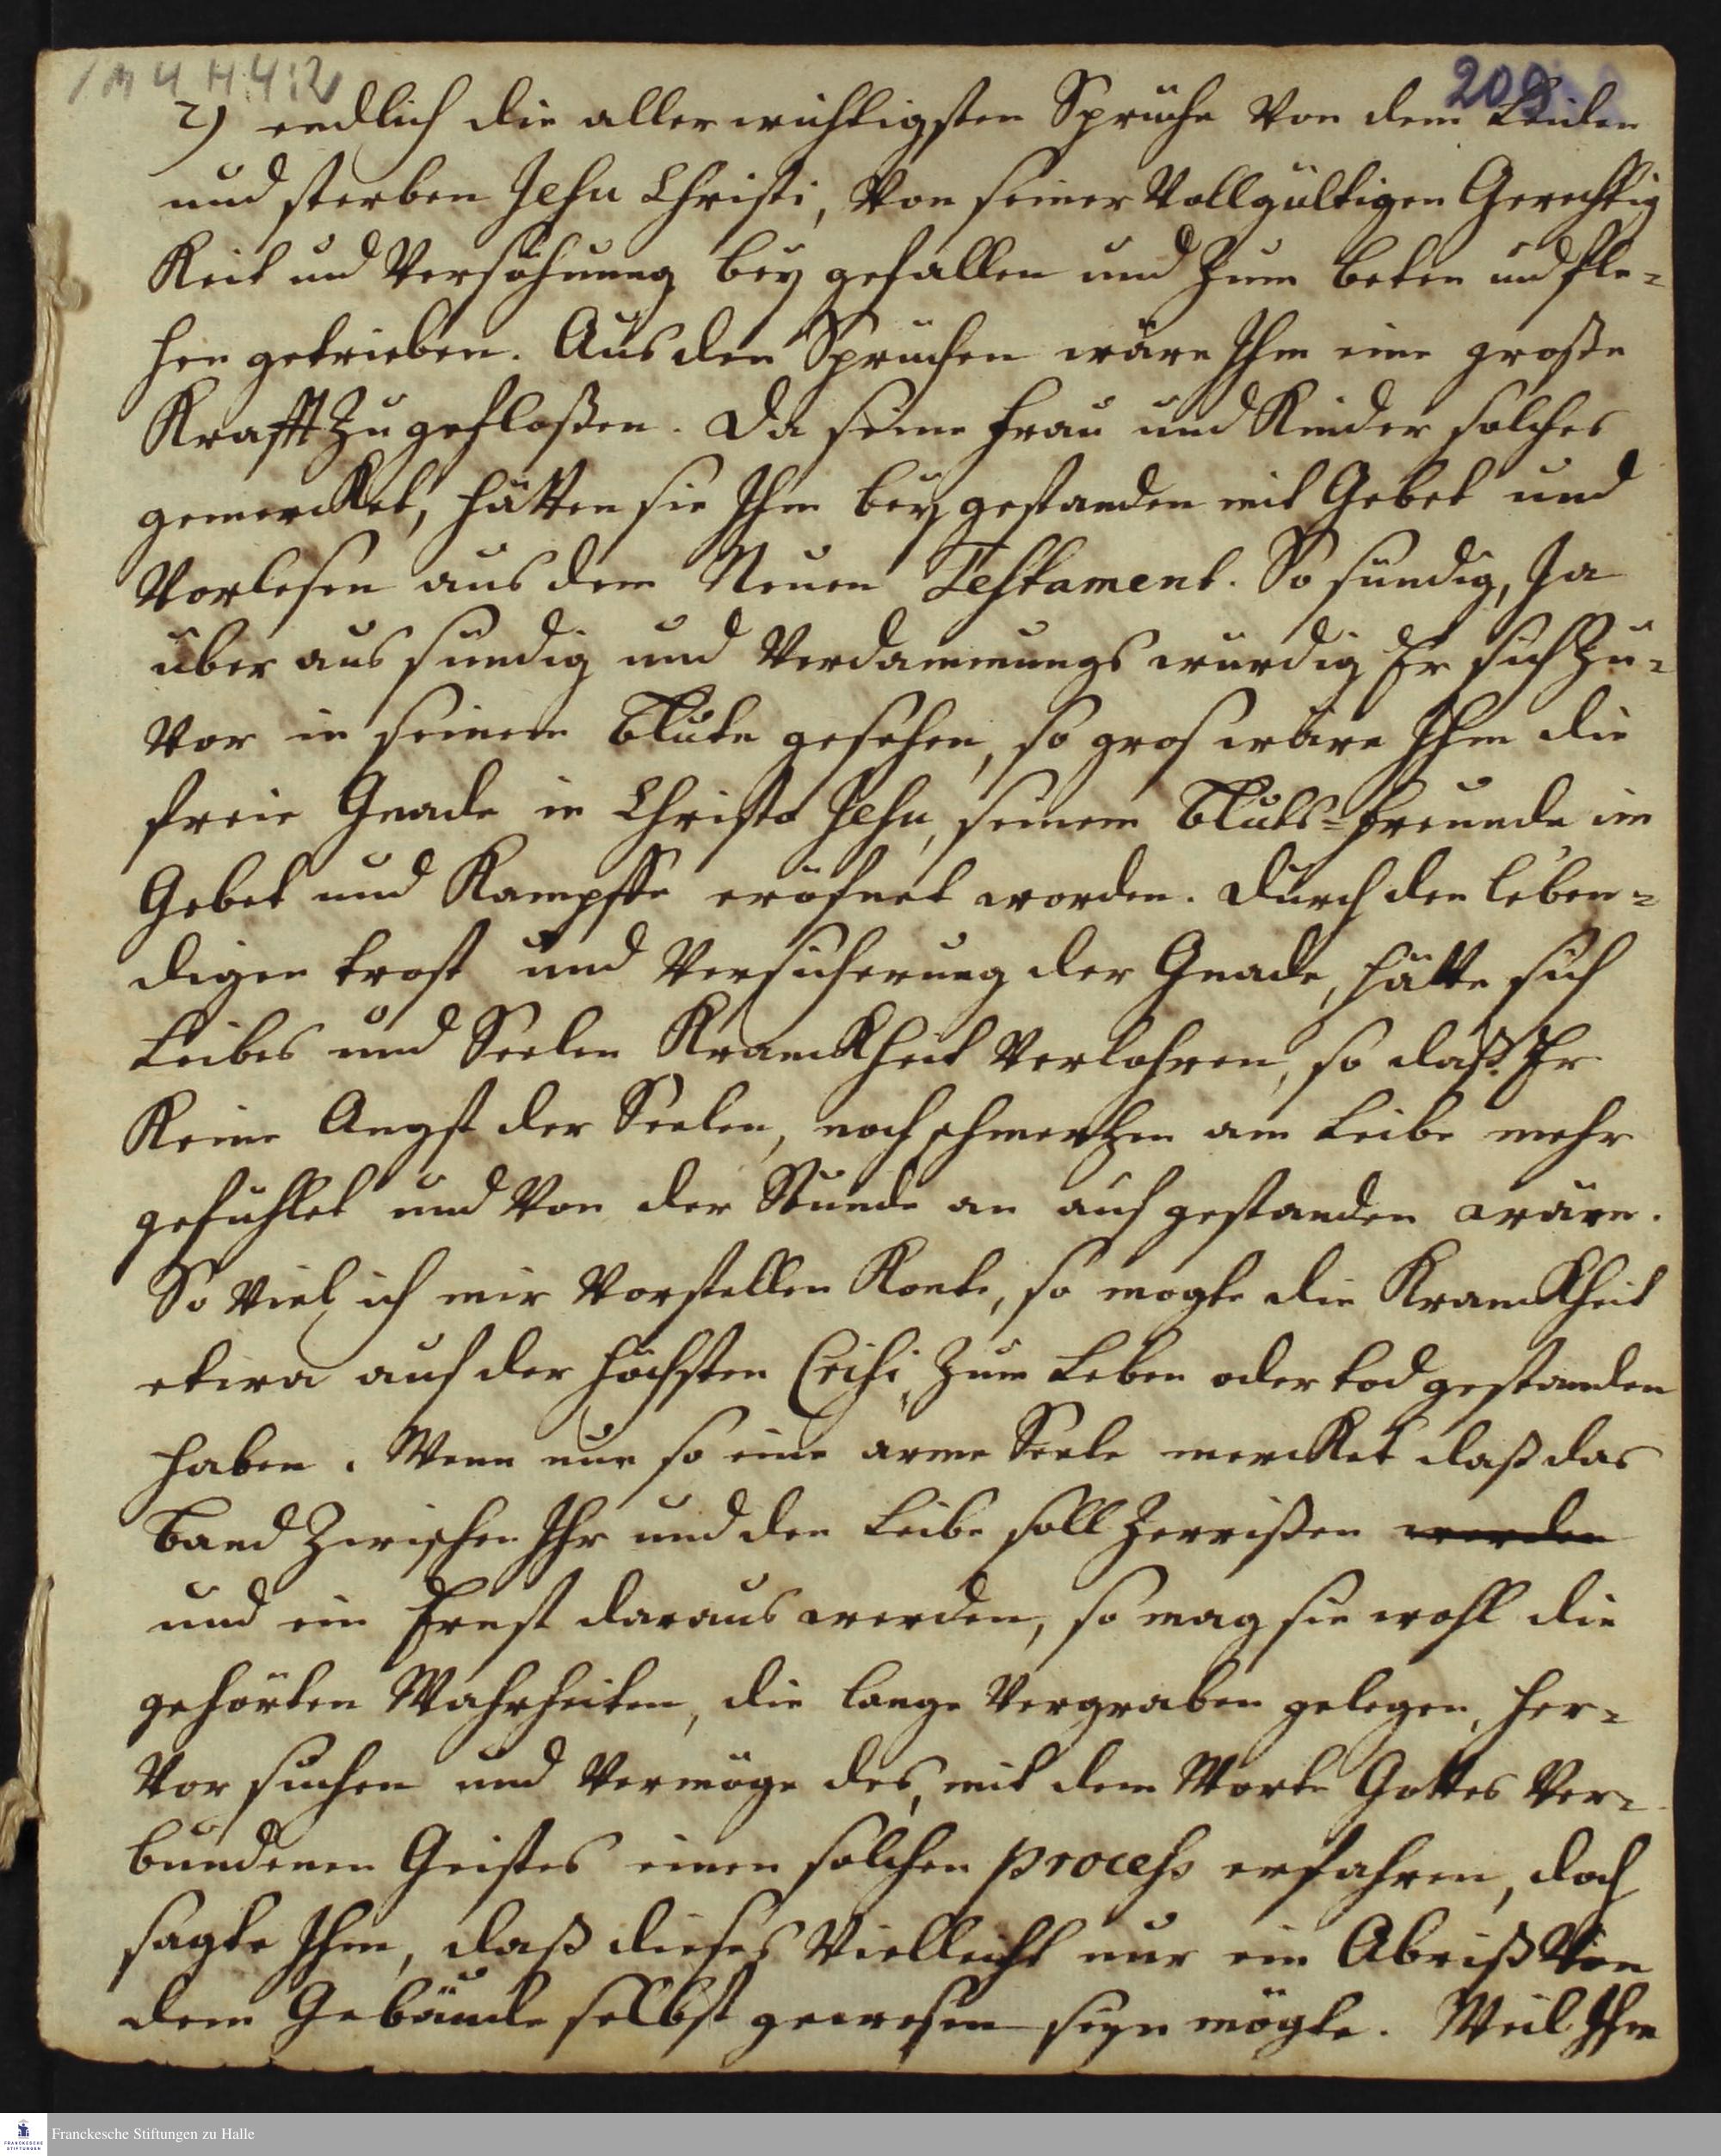 1 M 4 H 4:2
209
2) endlich die aller wichtigsten Sprüche von dem Leiden
und sterben Jesu Christi, von seiner vollgültigen Gerechtig
keit und Versöhnung bey gefallen und zum beten und fle=
hen getrieben. Aus den Sprüchen wäre Ihm eine große
Krafft zu gefloßen. Da seine Frau und Kinder solches
gemercket, hätten sie Ihm bey gestanden mit Gebet und
Vorlesen aus dem Neuen Testament. So sündig, Ja
über aus sündig und verdammungs würdig Er sich zu=
vor in seinem Blute gesehen, so gros wäre Ihm die
freie Gnade in Christo Jesu, seinem Bluts=freunde im
Gebet und Kampffe eröfnet worden. Durch den leben=
digen trost und Versicherung der Gnade, hätte sich
Leibes und Seelen Kranckheit verlohren, so daß Er
keine Angst der Seelen, noch schmertzen am Leibe mehr
gefühlet und von der Stunde an auf gestanden wäre.
So viel ich mir vorstellen konte, so mogte die Kranckheit
etwa auf der höchsten Crisi, zum Leben oder tod gestanden
haben. Wenn nun so eine arme Seele mercket daß das
Band zwischen Ihr und den Leibe soll zerrißen werden
und ein Ernst daraus werden, so mag sie wohl die
gehörten Wahrheiten, die lange vergraben gelegen, her=
vor suchen und vermöge des, mit dem Worte Gottes ver=
bundenen Geistes einen solchen process erfahren, doch
sagte Ihm, daß dieses vielleicht nur ein Abriß von
dem Gebäude selbst gewesen seyn mögte. Weil Ihm
Franckesche Stiftungen zu Halle